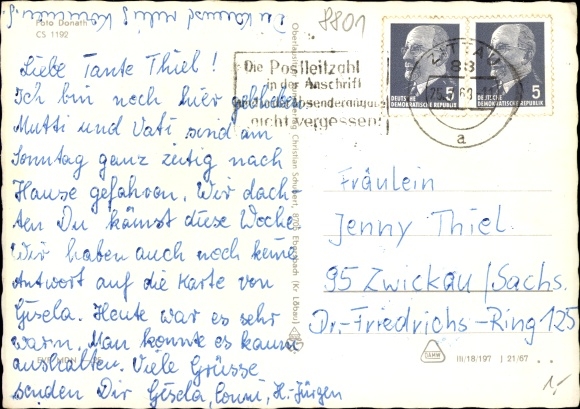 Du kannst ruhig kommen.
8801
Foto Donath
CS 1192
Liebe Tante Thiel!
Ich bin noch hier geblieben
Mutti und Vati sind am
Sonntag ganz zeitig nach
Hause gefahren. Wir dach-
ten Du kämst diese Woche
Wir haben auch noch keine
Antwort auf die Karte von
Gisela. Heute war es sehr
warm. Man konnte es kaum
aushalten. Viele Grüsse
senden Dir Gisela, Conni, H.-Jürgen
Die Postleitzahl
in der Anschrift
und Absenderangabe
nicht vergessen!
ZITTAU
88
a
DEUTSCHE
DEMOKRATISCHE REPUBLIK
5
DEUTSCHE
DEMOKRATISCHE REPUBLIK
5
Christian Schubert, 8705 Ebersbach (Kr. Löbau)
Fräulein
Jenny Thiel
95 Zwickau/Sachs.
Dr.-Friedrichs-Ring 125
DAHW
III/18/197 | 21/67
1,-